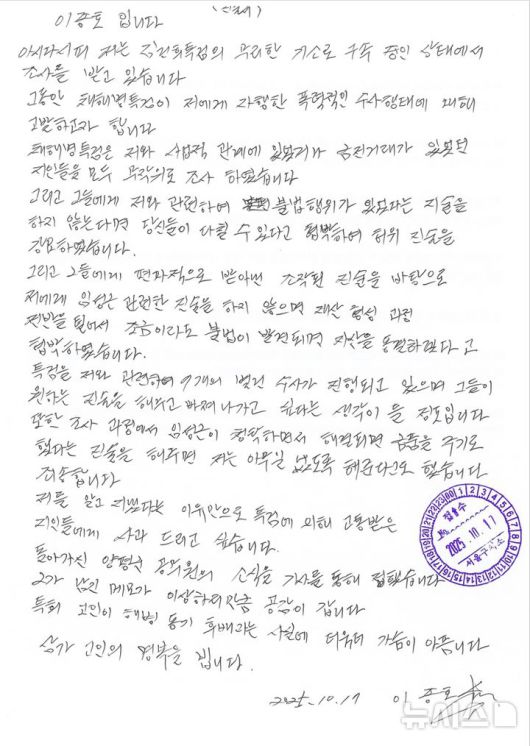 (인터뷰)
이종호 입니다
아시다시피 저는 김건희특검의 무리한 기소로 구속 중인 상태에서
조사를 받고 있습니다
그동안 채해병특검이 저에게 자행한 폭력적인 수사행태에 대해
고발하고자 합니다
채해병특검은 저와 사업적 관계에 있었거나 금전거래가 있었던
지인들을 모두 무작위로 조사 하였습니다
그리고 그들에게 저와 관련하여 불법행위가 있었다는 진술을
하지 않는다면 당신들이 다칠 수 있다고 협박하여 허위 진술을
강요하였습니다.
그리고 그들에게 편파적으로 받아낸 조작된 진술을 바탕으로
저에게 임성근 관련한 진술을 하지 않으면 재산 형성 과정
전반을 털어서 조금이라도 불법이 발견되면 자산을 동결하겠다고
협박하였습니다.
특검은 저와 관련하여 9개의 별건 수사가 진행되고 있으며 그들이
원하는 진술을 해주고 빠져나가고 싶다는 생각이 들 정도입니다
또한 조사 과정에서 임성근이 청탁하면서 해결되면 금품을 주기로
했다는 진술을 해주면 저는 아무일 없도록 해준다고도 했습니다
죄송합니다
저를 알고 지냈다는 이유만으로 특검에 의해 고통받은
지인들에게 사과 드리고 싶습니다.
돌아가신 양평군 공무원의 소식을 기사를 통해 접했습니다
그가 남긴 메모가 이상하리만큼 공감이 갑니다
특히 고인이 해병 동기 후배라는 사실에 더욱더 가슴이 아픕니다
삼가 고인의 명복을 빕니다.
2025.10.17 이종호
접수
2025.10.17
서울구치소
뉴시스